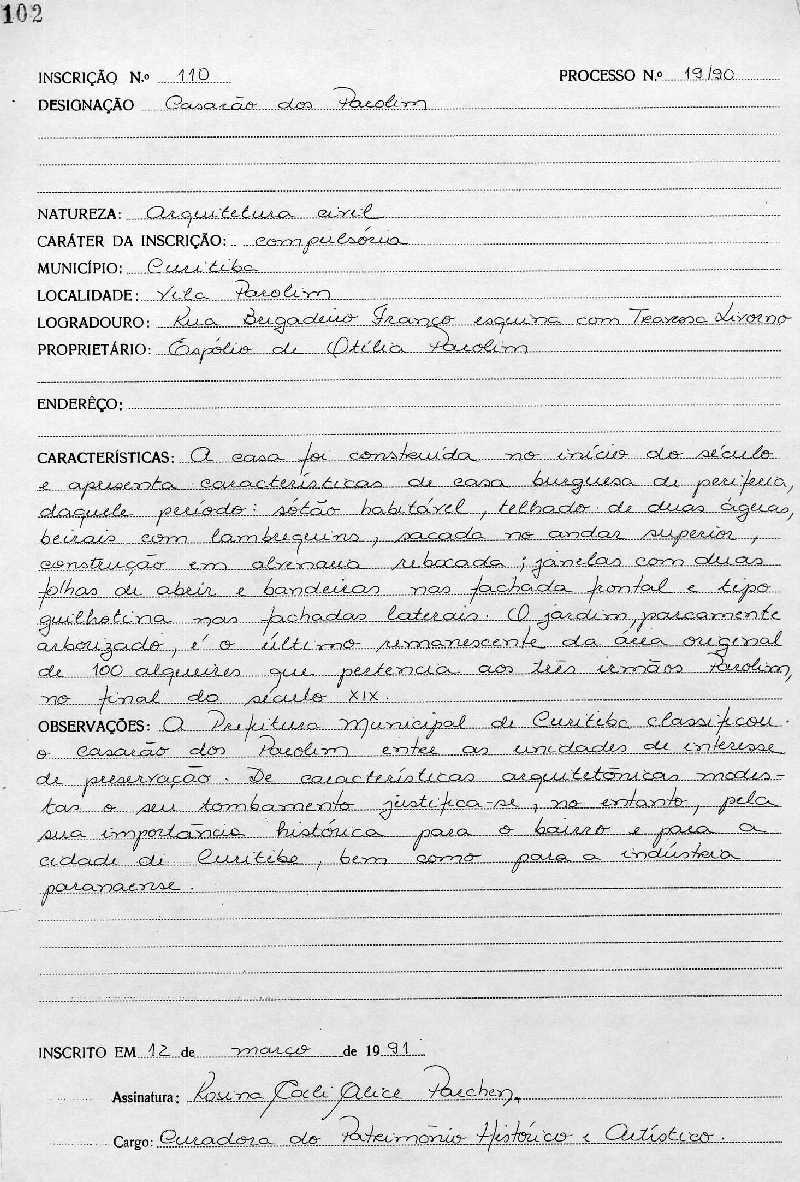 102
INSCRIÇÃO N.º 110 PROCESSO N.º 19/90
DESIGNAÇÃO Casarão dos Parolim
NATUREZA: Arquitetura civil
CARÁTER DA INSCRIÇÃO: compulsória
MUNICÍPIO: Curitiba
LOCALIDADE: Vila Parolim
LOGRADOURO: Rua Brigadeiro Franco esquina com Travessa Livorno
PROPRIETÁRIO: Espólio de Otília Parolim
ENDERÊÇO:
CARACTERÍSTICAS: A casa foi construída no início do século
e apresenta características de casa burguesa de periferia,
daquele período: sótão habitável, telhado de duas águas,
beirais com lambrequins, sacada no andar superior,
construção em alvenaria rebocada; janelas com duas
folhas de abrir e bandeiras nas fachada frontal e tipo
guilhotina nas fachadas laterais. O jardim, parcamente
arborizado, é o último remanescente da área original
de 100 alqueires que pertencia aos três irmãos Parolim,
no final do século XIX.
OBSERVAÇÕES: A Prefeitura Municipal de Curitiba classificou
o casarão dos Parolim entre as unidades de interesse
de preservação. De características arquitetônicas modes-
tas o seu tombamento justifica-se, no entanto, pela
sua importância histórica para o bairro e para a
cidade de Curitiba, bem como para a indústria
paranaense.
INSCRITO EM 12 de março de 19 91
Assinatura: Rosina Alice Parchen
Cargo: Curadora do Patrimônio Histórico e Artístico.